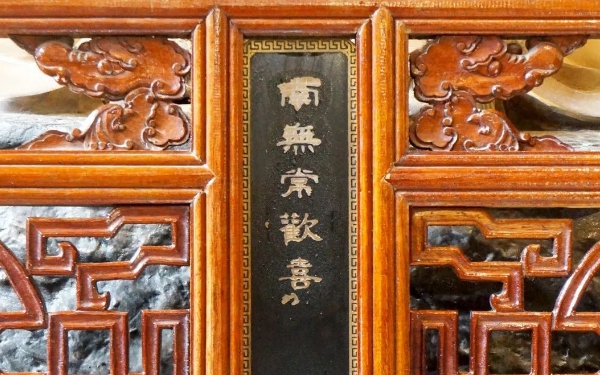 南無常歡喜